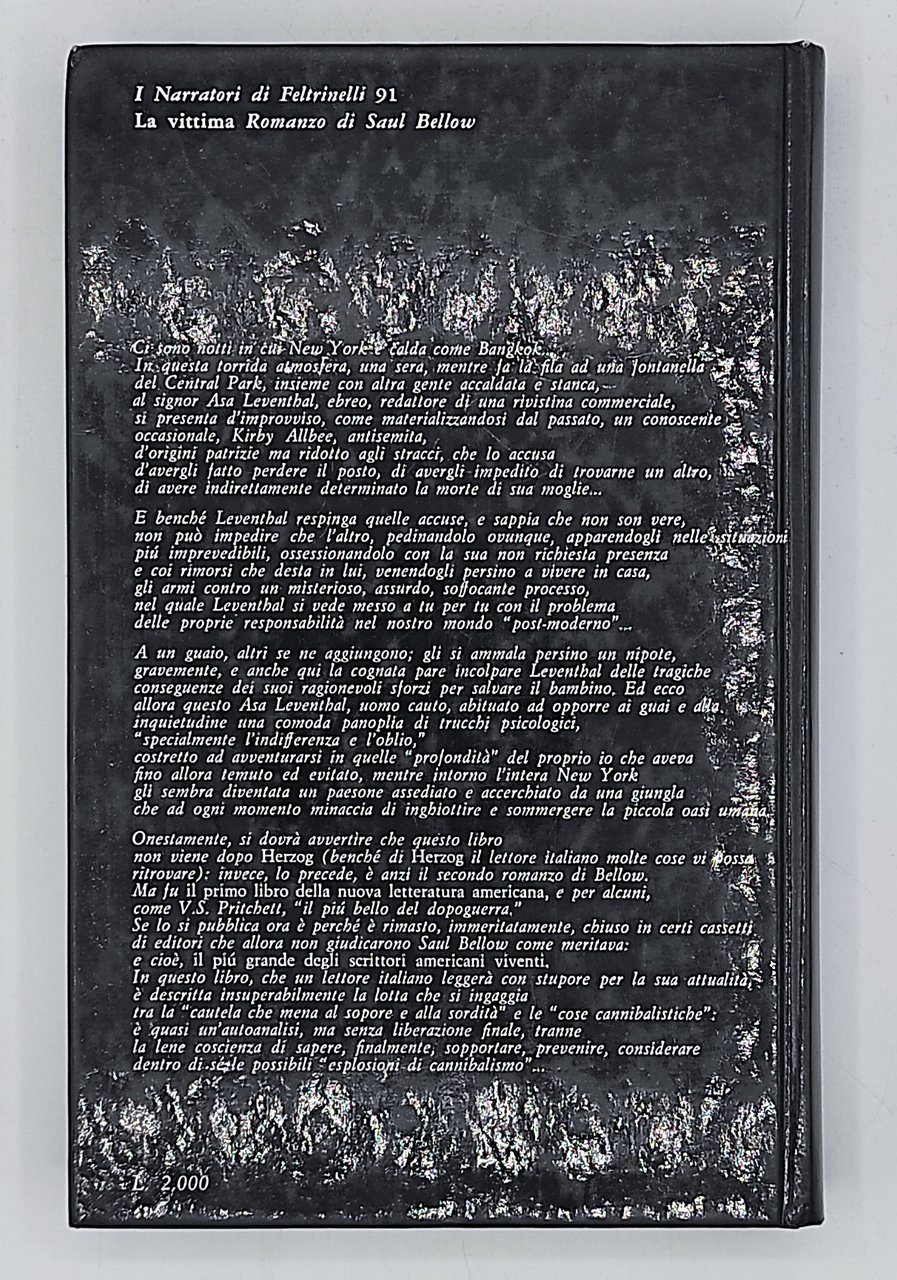 I Narratori di Feltrinelli 91
La vittima Romanzo di Saul Bellow
Ci sono notti in cui New York è calda come Bangkok...
In questa torrida atmosfera, una sera, mentre fa la fila ad una fontanella
del Central Park, insieme con altra gente accaldata e stanca,
al signor Asa Leventhal, ebreo, redattore di una rivistina commerciale,
si presenta d'improvviso, come materializzandosi dal passato, un conoscente
occasionale, Kirby Allbee, antisemita,
d'origini patrizie ma ridotto agli stracci, che lo accusa
d'avergli fatto perdere il posto, di avergli impedito di trovarne un altro,
di avere indirettamente determinato la morte di sua moglie...
E benché Leventhal respinga quelle accuse, e sappia che non son vere,
non può impedire che l'altro, pedinandolo ovunque, apparendogli nelle situazioni
piú imprevedibili, ossessionandolo con la sua non richiesta presenza
e coi rimorsi che desta in lui, venendogli persino a vivere in casa,
gli armi contro un misterioso, assurdo, soffocante processo,
nel quale Leventhal si vede messo a tu per tu con il problema
delle proprie responsabilità nel nostro mondo "post-moderno"...
A un guaio, altri se ne aggiungono; gli si ammala persino un nipote,
gravemente, e anche qui la cognata pare incolpare Leventhal delle tragiche
conseguenze dei suoi ragionevoli sforzi per salvare il bambino. Ed ecco
allora questo Asa Leventhal, uomo cauto, abituato ad opporre ai guai e alla
inquietudine una comoda panoplia di trucchi psicologici,
"specialmente l'indifferenza e l'oblio,"
costretto ad avventurarsi in quelle "profondità" del proprio io che aveva
fino allora temuto ed evitato, mentre intorno l'intera New York
gli sembra diventata un paesone assediato e accerchiato da una giungla
che ad ogni momento minaccia di inghiottire e sommergere la piccola oasi umana.
Onestamente, si dovrà avvertire che questo libro
non viene dopo Herzog (benché di Herzog il lettore italiano molte cose vi possa
ritrovare): invece, lo precede, è anzi il secondo romanzo di Bellow.
Ma fu il primo libro della nuova letteratura americana, e per alcuni,
come V.S. Pritchett, "il piú bello del dopoguerra."
Se lo si pubblica ora è perché è rimasto, immeritatamente, chiuso in certi cassetti
di editori che allora non giudicarono Saul Bellow come meritava:
e cioè, il piú grande degli scrittori americani viventi.
In questo libro, che un lettore italiano leggerà con stupore per la sua attualità,
è descritta insuperabilmente la lotta che si ingaggia
tra la "cautela che mena al sopore e alla sordità" e le "cose cannibalistiche":
è quasi un'autoanalisi, ma senza liberazione finale, tranne
la lene coscienza di sapere, finalmente, sopportare, prevenire, considerare
dentro di sé le possibili "esplosioni di cannibalismo"...
L. 2.000